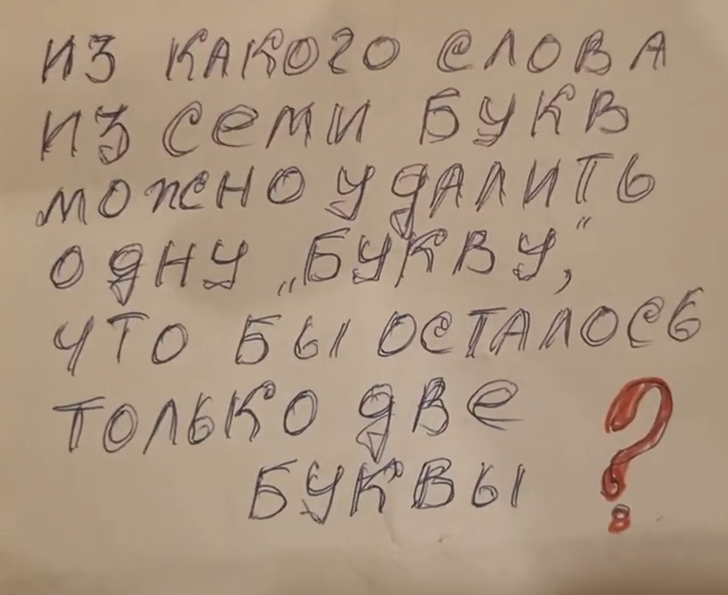 ИЗ КАКОГО СЛОВА
ИЗ СЕМИ БУКВ
МОЖНО УДАЛИТЬ
ОДНУ „БУКВУ,“
ЧТО БЫ ОСТАЛОСЬ
ТОЛЬКО ДВЕ
БУКВЫ ?